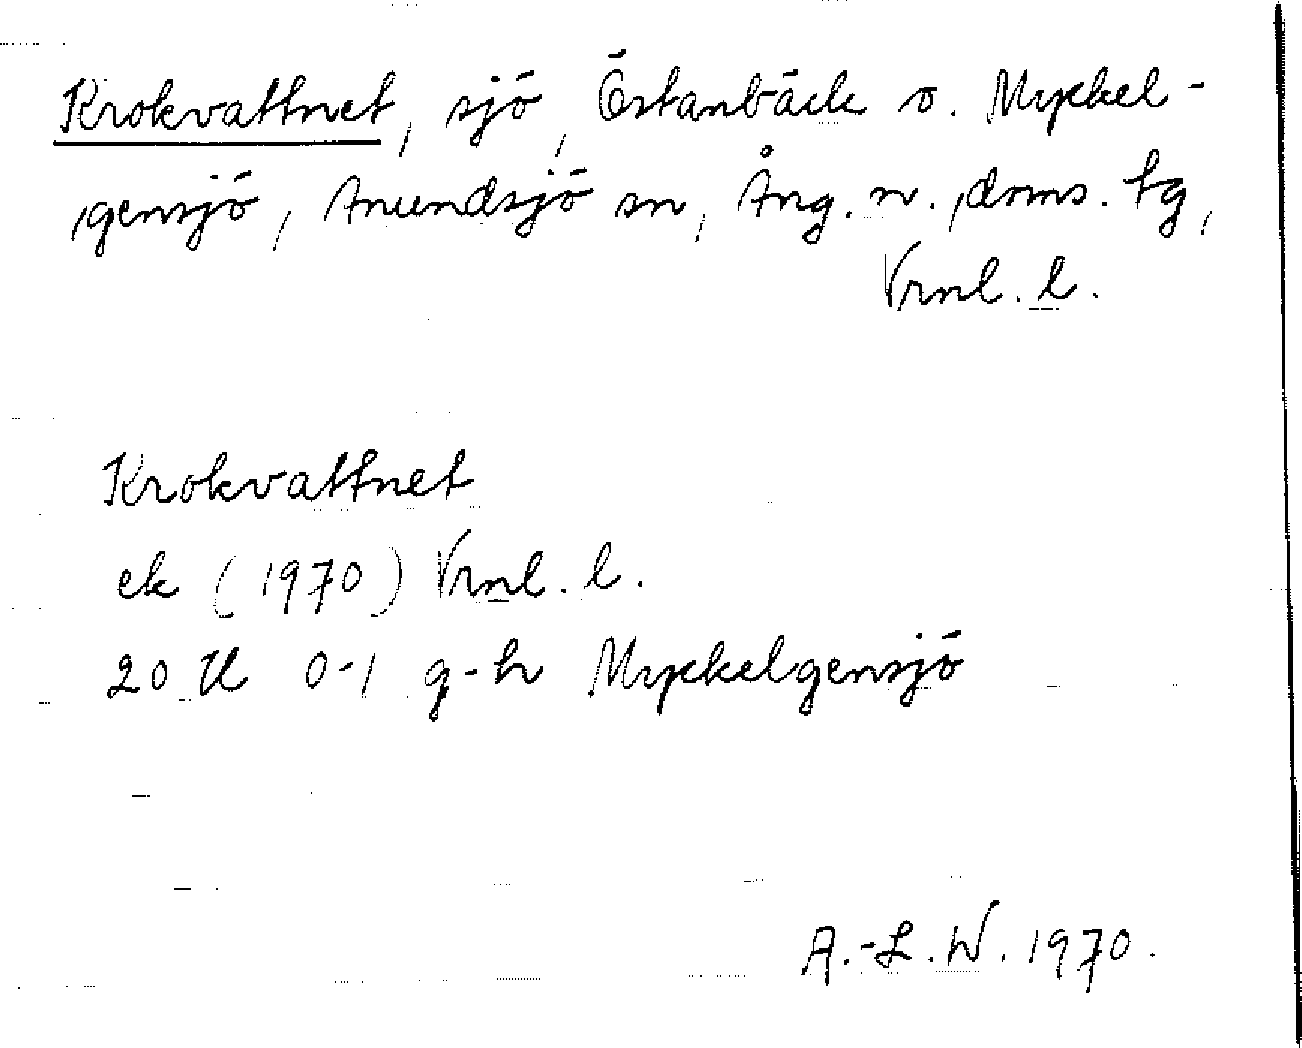 Krokvattnet, sjö, Östanbäck o. Myckel-
gensjö, Anundsjö sn, Ång. n. doms. tg,
Vrnl. l.
Krokvattnet
ek (1970) Vrnl. l.
20 H 0-1 g-h Myckelgensjö
A.-L.W. 1970.